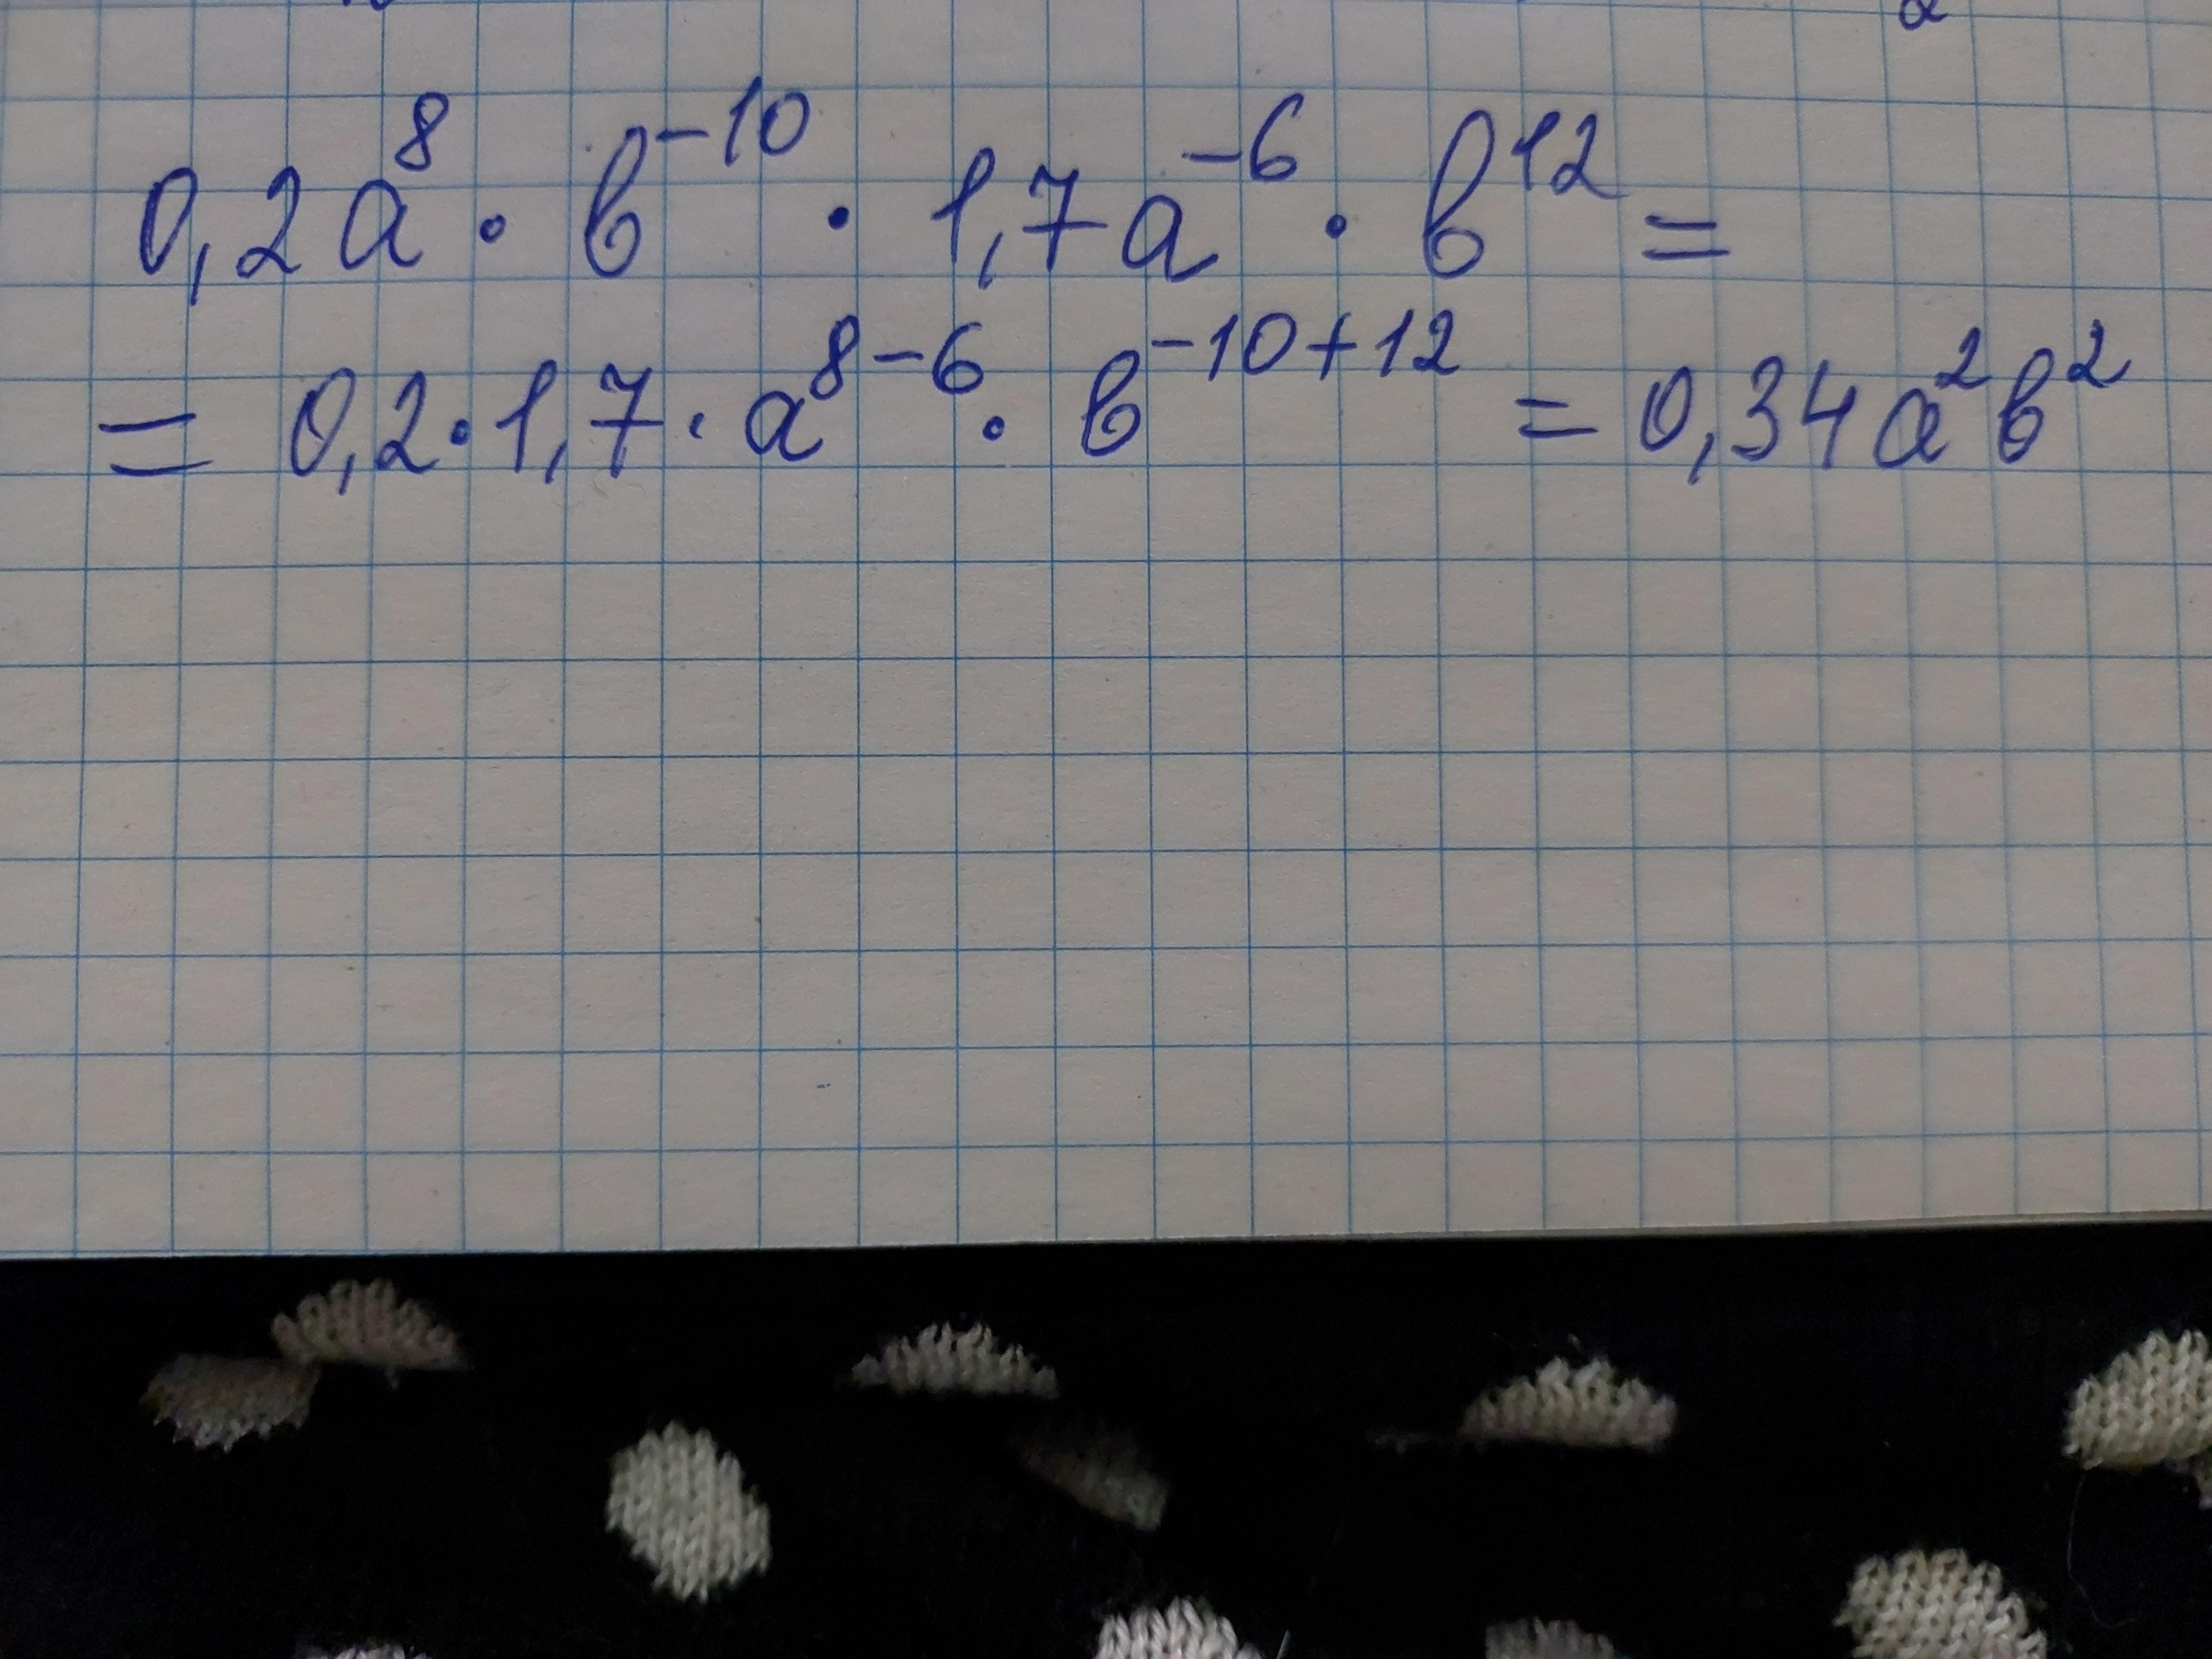 0,2a⁸ · b⁻¹⁰ · 1,7a⁻⁶ · b¹² =
= 0,2 · 1,7 · a⁸⁻⁶ · b⁻¹⁰⁺¹² = 0,34a²b²